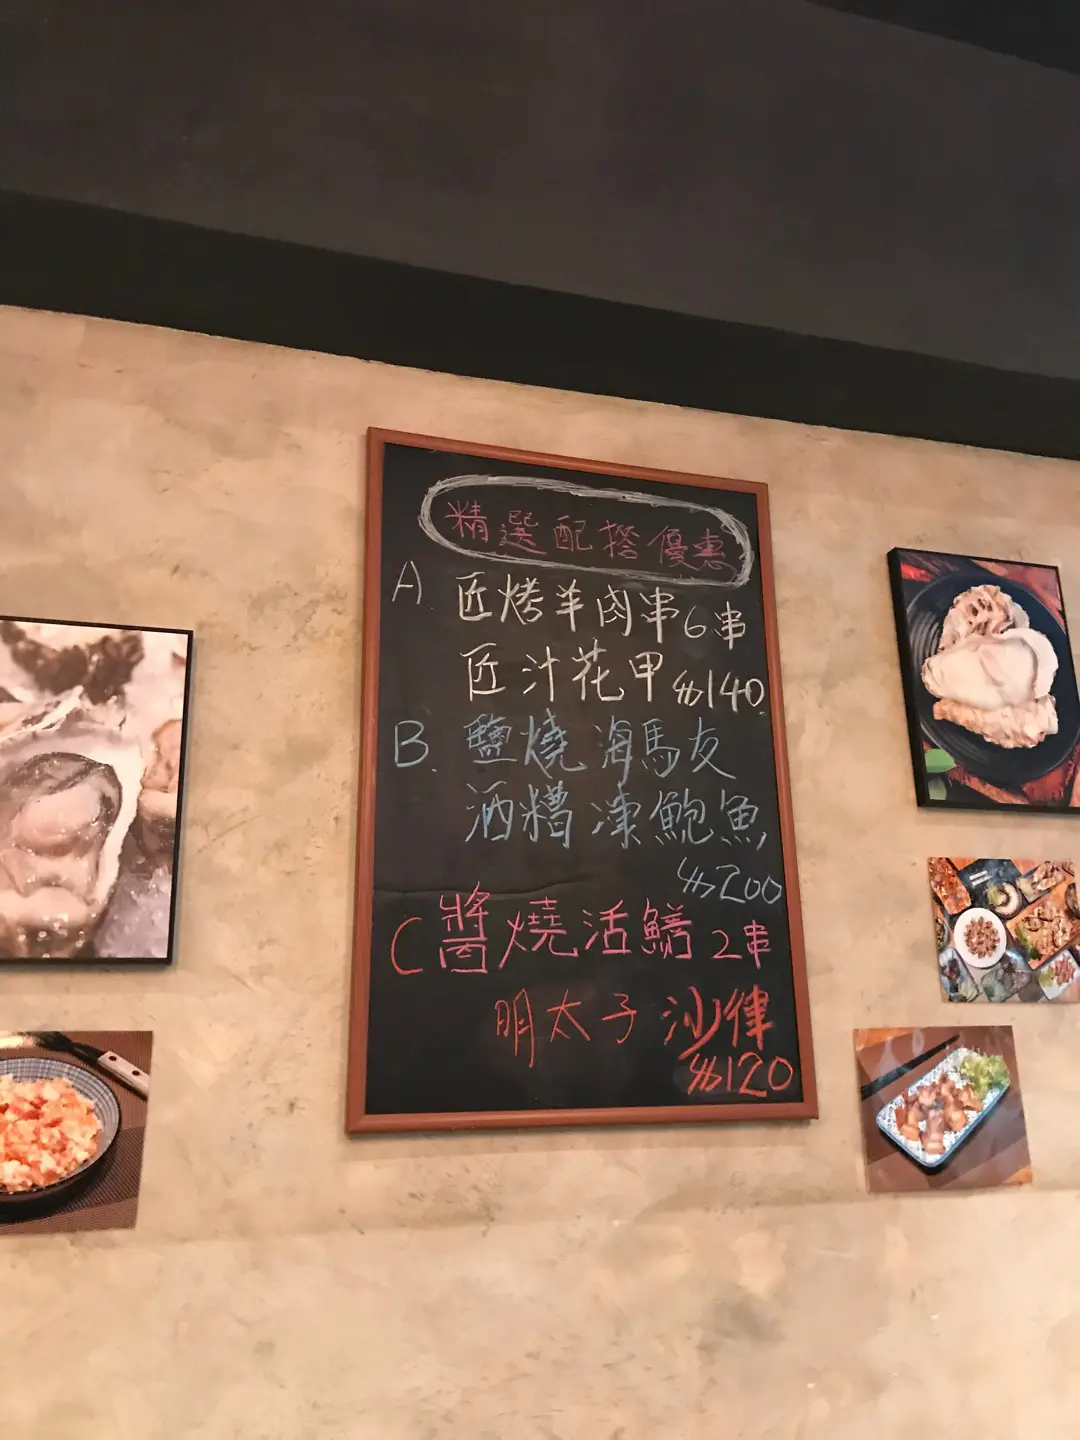 精選配搭優惠
A 匠烤羊肉串6串
匠汁花甲 $140
B. 鹽燒海馬友
酒糟凍鮑魚
$200
C 醬燒活鱔2串
明太子沙律
$120